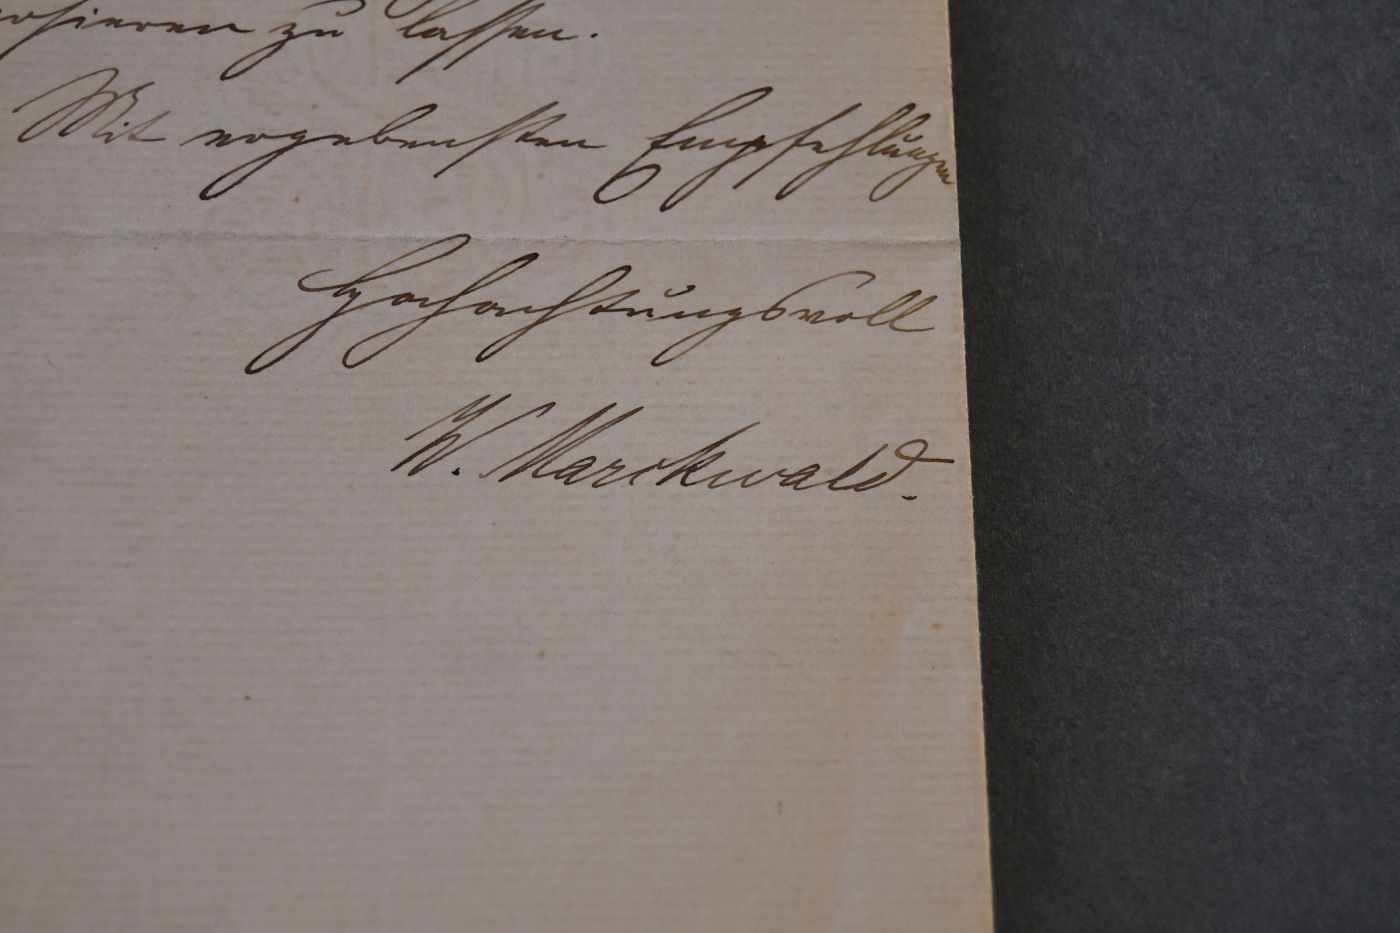 zu lassen.
Mit ergebensten Empfehlungen
Hochachtungsvoll
W. Marckwald.